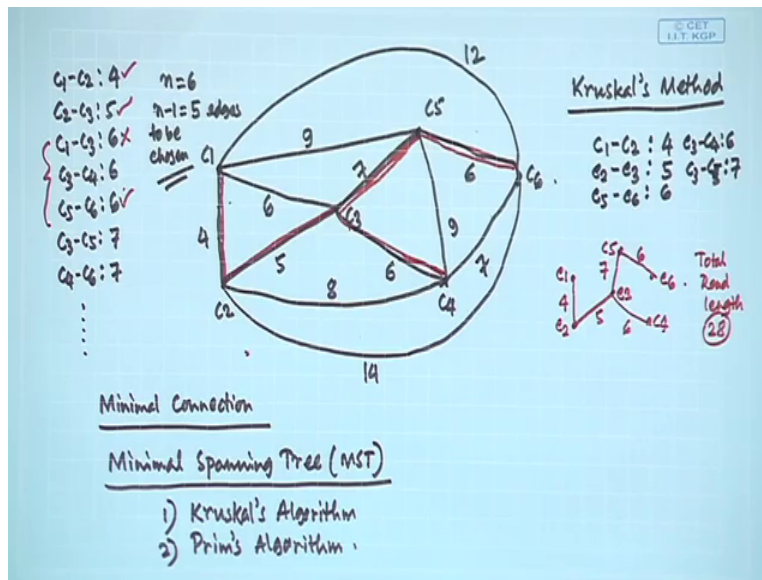 © CET
I.I.T. KGP
C1-C2: 4 ✓
C2-C3: 5 ✓
C1-C3: 6 ×
C3-C4: 6
C5-C6: 6 ✓
C3-C5: 7
C4-C6: 7
n=6
n-1=5 edges
to be
chosen
12
C5
9
C1
7
6
C6
6
C3
4
9
5
6
7
8
C4
C2
14
Kruskal's Method
C1-C2 : 4 C3-C4: 6
C2-C3 : 5 C3-C5: 7
C5-C6 : 6
C5
6
C1
7
C6
4
C3
C2
5
6
C4
Total
Road
length
28
Minimal Connection
Minimal Spanning Tree (MST)
1) Kruskal's Algorithm
2) Prim's Algorithm.